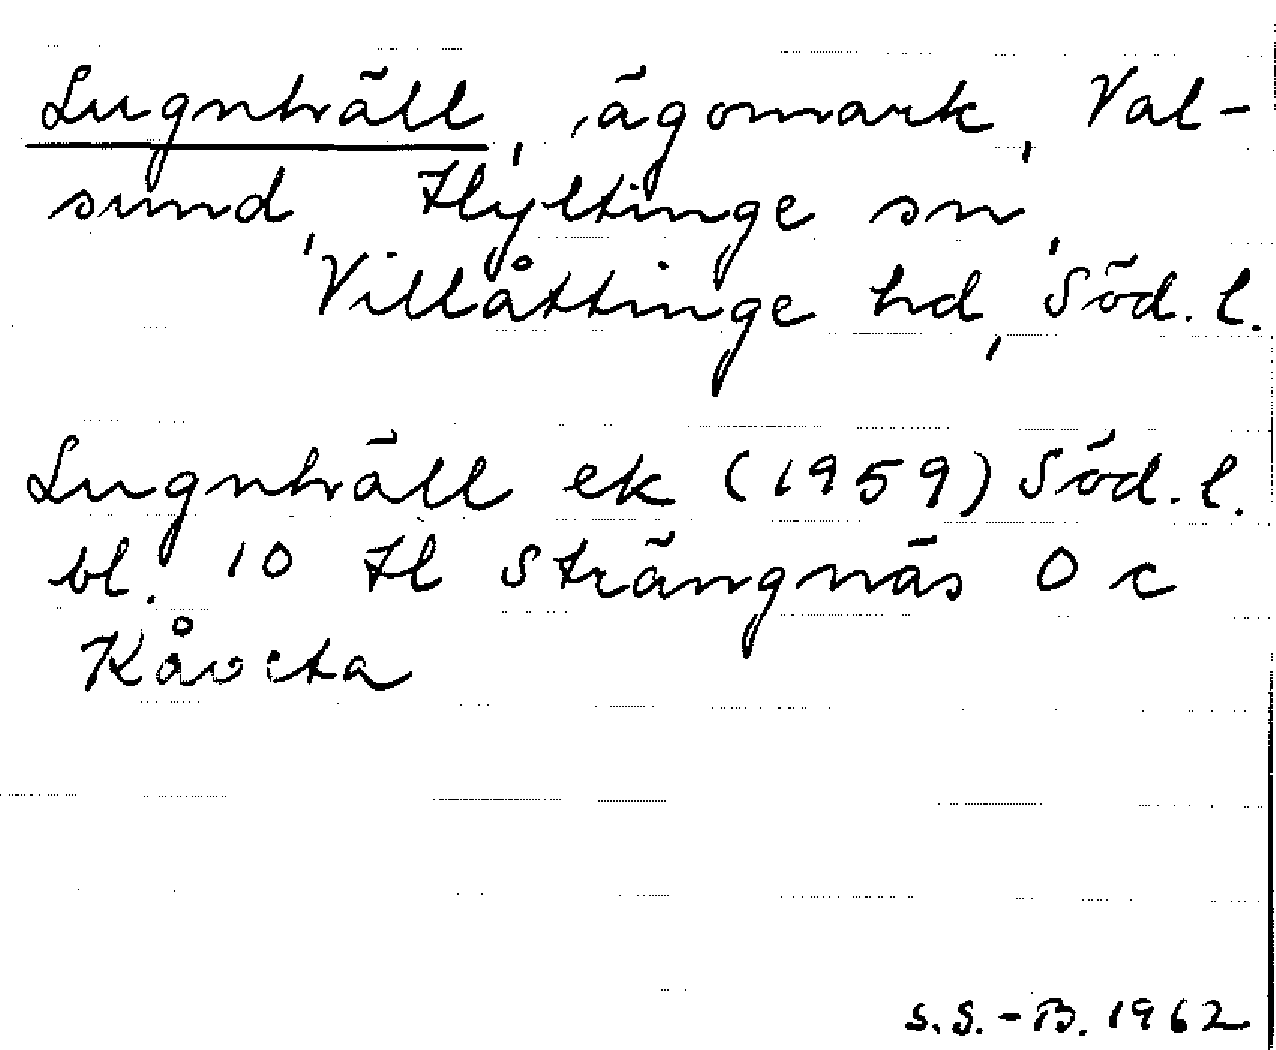 Lugnhäll, ägomark, Val-
sund, Hyltinge sn,
Villåttinge hd, Söd. l.
Lugnhäll ek (1959) Söd. l.
bl. 10 H Strängnäs O c
S.S.-B. 1962